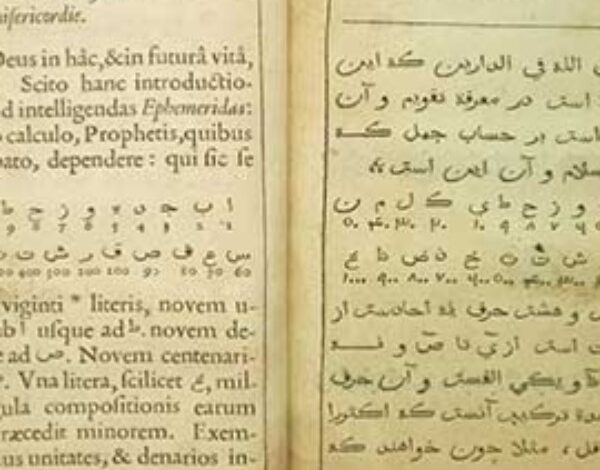 isericordie.
Deus in hâc,&in futurâ vitâ,
Scito hanc introductio-
d intelligendas Ephemeridas:
calculo, Prophetis,quibus
pato, dependere : qui sic se
ا ب ج د ه و ز ح ط
9 8 7 6 5 4 3 2 1
س ع ف ص ق ر ش ت
400 300 200 100 90 80 70 60
viginti * literis, novem u-
ab ا usque ad ط. novem de-
e ad ص. Novem centenari-
Vna litera, scilicet غ, mil-
gula compositionis earum
præcedit minorem. Exem-
us unitates, & denarios in-
الله في الدارين كه اين
است در معرفة تقويم و آن
است بر حساب جمل كه
سلام و آن اين است
و ز ح ط ي ك ل م ن
ش ت ث خ ذ ض ظ غ
و هشت حرف نه آحادست از
است از ي تا ص و نه
و يكي الفست و آن حرف
تركيب آنست كه اكثر را
مثلا چون خواهند كه